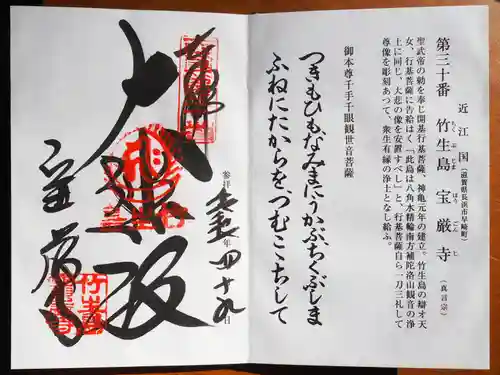 近江国(滋賀県長浜市早崎町)
第三十番 竹生島 宝厳寺(真言宗)
ちくぶしま ほうごんじ
聖武帝の勅を奉じ開基行基菩薩、神亀元年の建立。竹生島の辯才天
女、行基菩薩に告給はく「此島は八角水精輪南方補陀洛山観音の浄
土に同じ、大悲の像を安置すべし」と、行基菩薩自ら一刀三礼して
尊像を彫刻あつて、衆生有縁の浄土となし給ふ。
御本尊千手千眼観世音菩薩
つきもひもなみまにうかぶちくぶしま
ふねにたからをつむこゝちして
参拝
年四十九日
大悲殿
宝厳寺